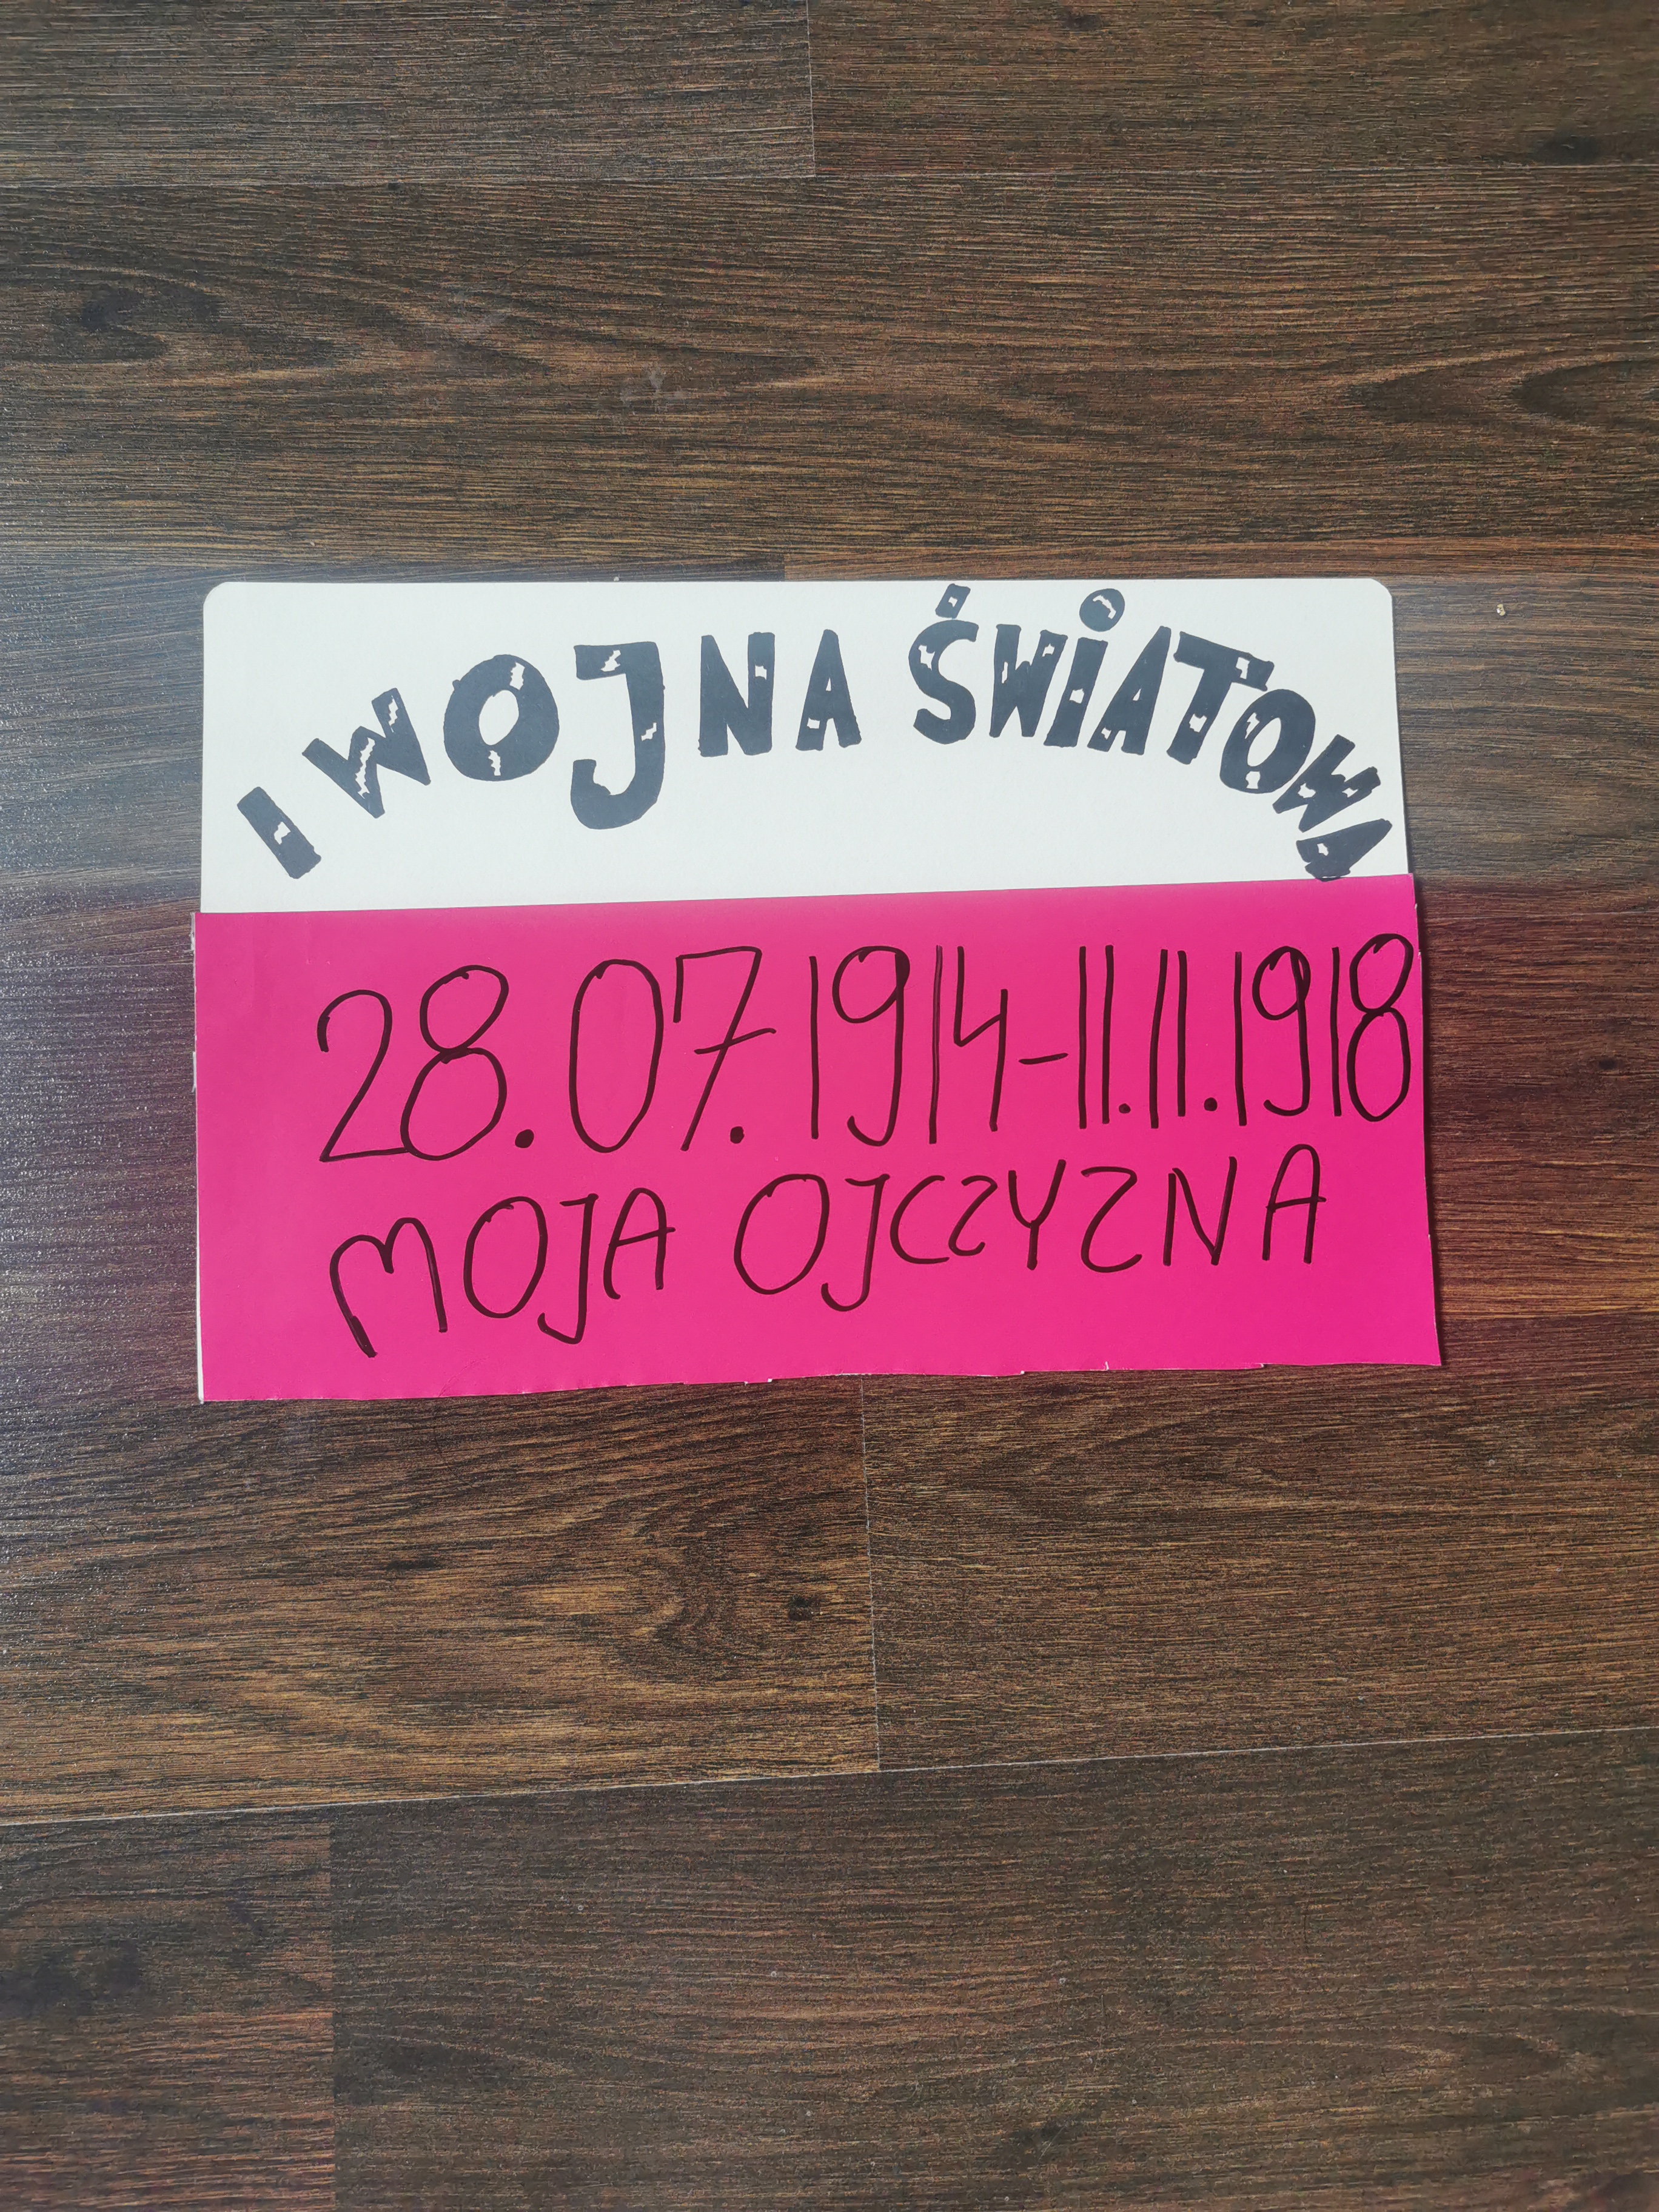 I WOJNA ŚWIATOWA
28.07.1914-11.11.1918
MOJA OJCZYZNA